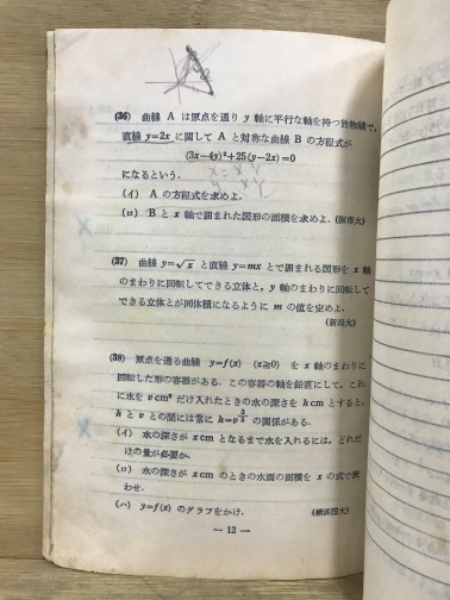 (36) 曲線 A は原点を通り y 軸に平行な軸を持つ放物線で,
直線 y=2x に関して A と対称な曲線 B の方程式が
(3x−4y)²+25(y−2x)=0
になるという.
(イ) A の方程式を求めよ.
(ロ) B と x 軸で囲まれた図形の面積を求めよ. (阪市大)
(37) 曲線 y=√x と直線 y=mx とで囲まれる図形を x 軸
のまわりに回転してできる立体と, y 軸のまわりに回転して
できる立体とが同体積になるように m の値を定めよ.
(新潟大)
(38) 原点を通る曲線 y=f(x) (x≧0) を x 軸のまわりに
回転した形の容器がある. この容器の軸を鉛直にして, これ
に水を v cm³ だけ入れたときの水の深さを h cm とすると,
h と v との間には常に の関係がある.
(イ) 水の深さが x cm となるまで水を入れるには, どれだ
けの量が必要か.
(ロ) 水の深さが x cm のときの水面の面積を x の式で表
わせ.
(ハ) y=f(x) のグラフをかけ. (横浜国大)
— 12 —